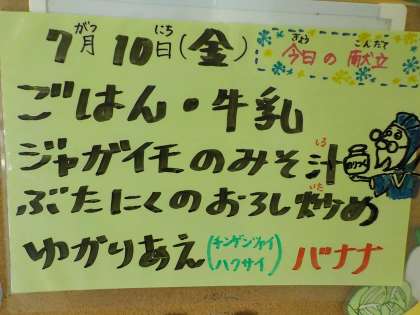 7月10日(金)
今日の献立
ごはん・牛乳
ジャガイモのみそ汁
ぶたにくのおろし炒め
ゆかりあえ(キンゲンジャイ ハクサイ) バナナ